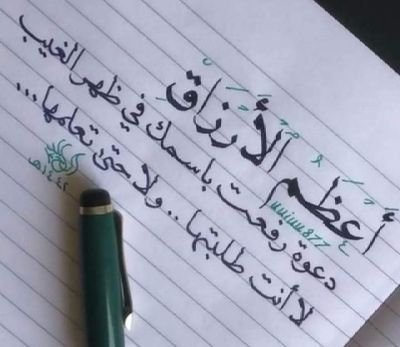 أَعظَمُ الأَرزَاقِ
دعوة رفعت باسمك في ظهر الغيب
لا أنت طلبتها.. ولا حتى تعلمها...
١٤٤٢هـ